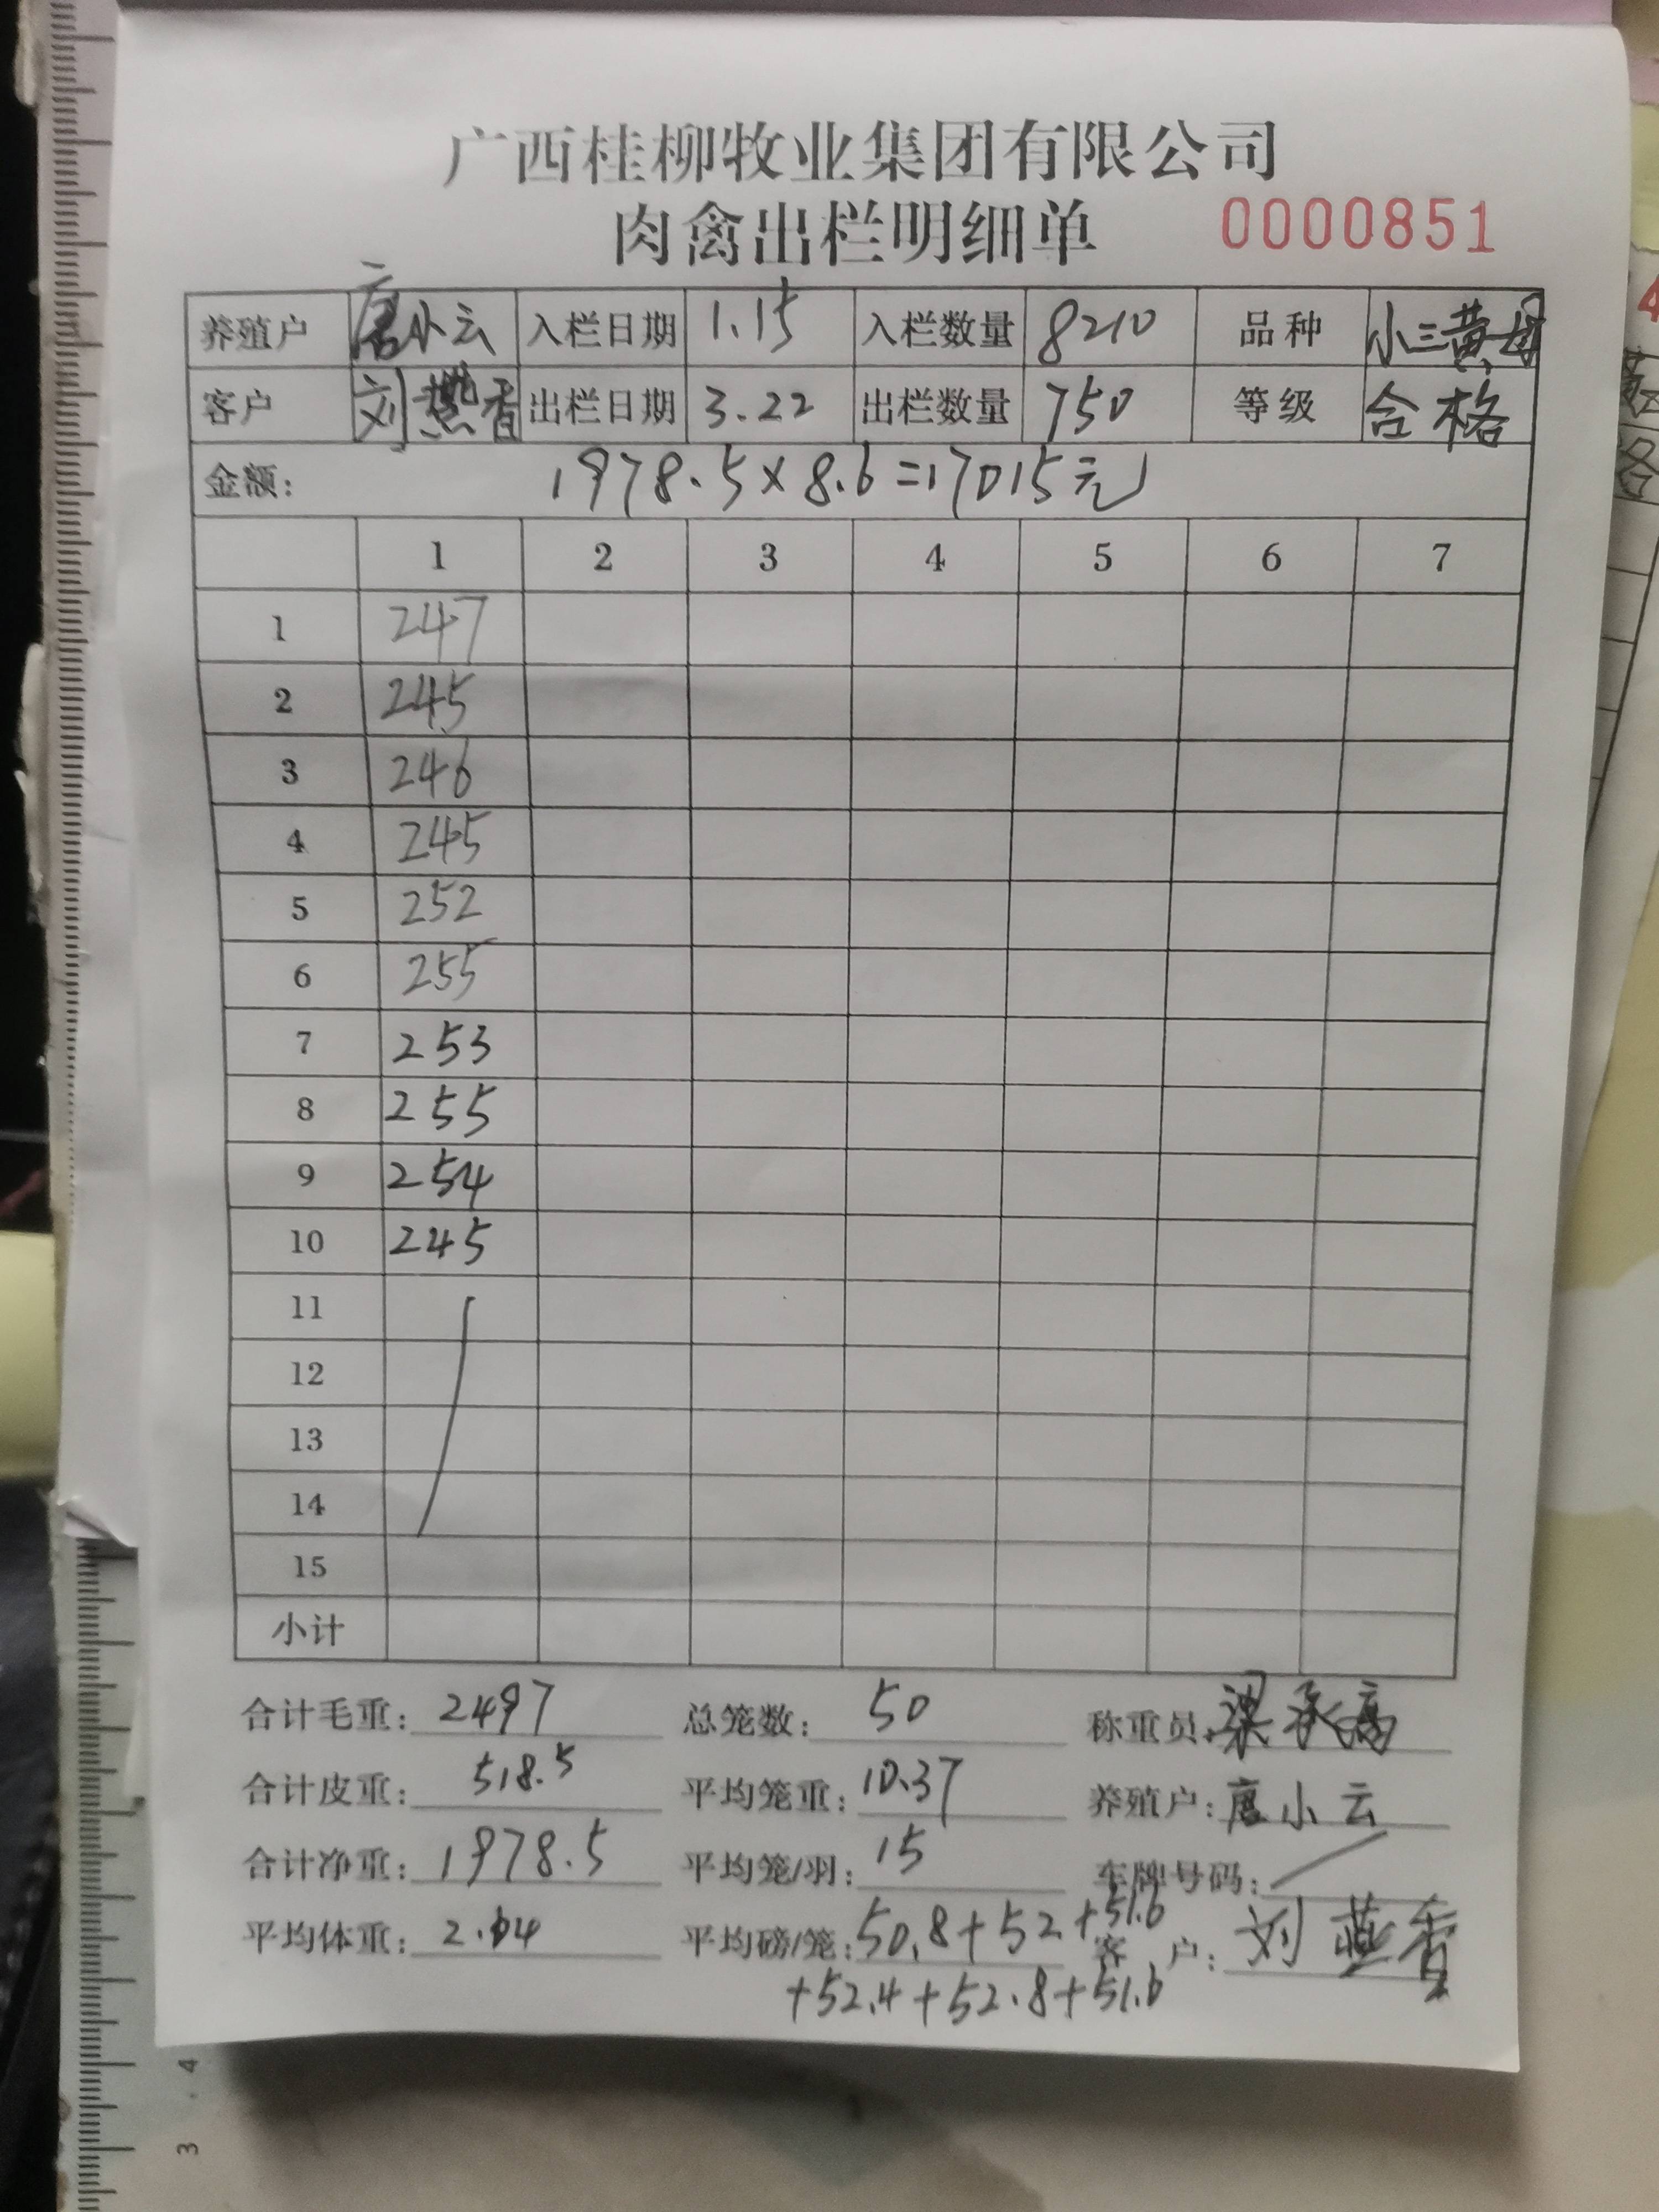 广西桂柳牧业集团有限公司
肉禽出栏明细单 0000851
养殖户 唐小云 入栏日期 1.15 入栏数量 8210 品种 小三黄母
客户 刘燕香 出栏日期 3.22 出栏数量 750 等级 合格
金额: 1978.5×8.6=17015元
1 2 3 4 5 6 7
1 247
2 245
3 246
4 245
5 252
6 255
7 253
8 255
9 254
10 245
11
12
13
14
15
小计
合计毛重: 2497 总笼数: 50 称重员: 梁承高
合计皮重: 518.5 平均笼重: 10.37 养殖户: 唐小云
合计净重: 1978.5 平均笼/羽: 15 车牌号码:
平均体重: 2.64 平均磅/笼: 50.8+52+51.6 客 户: 刘燕香
+52.4+52.8+51.6
3.4
3